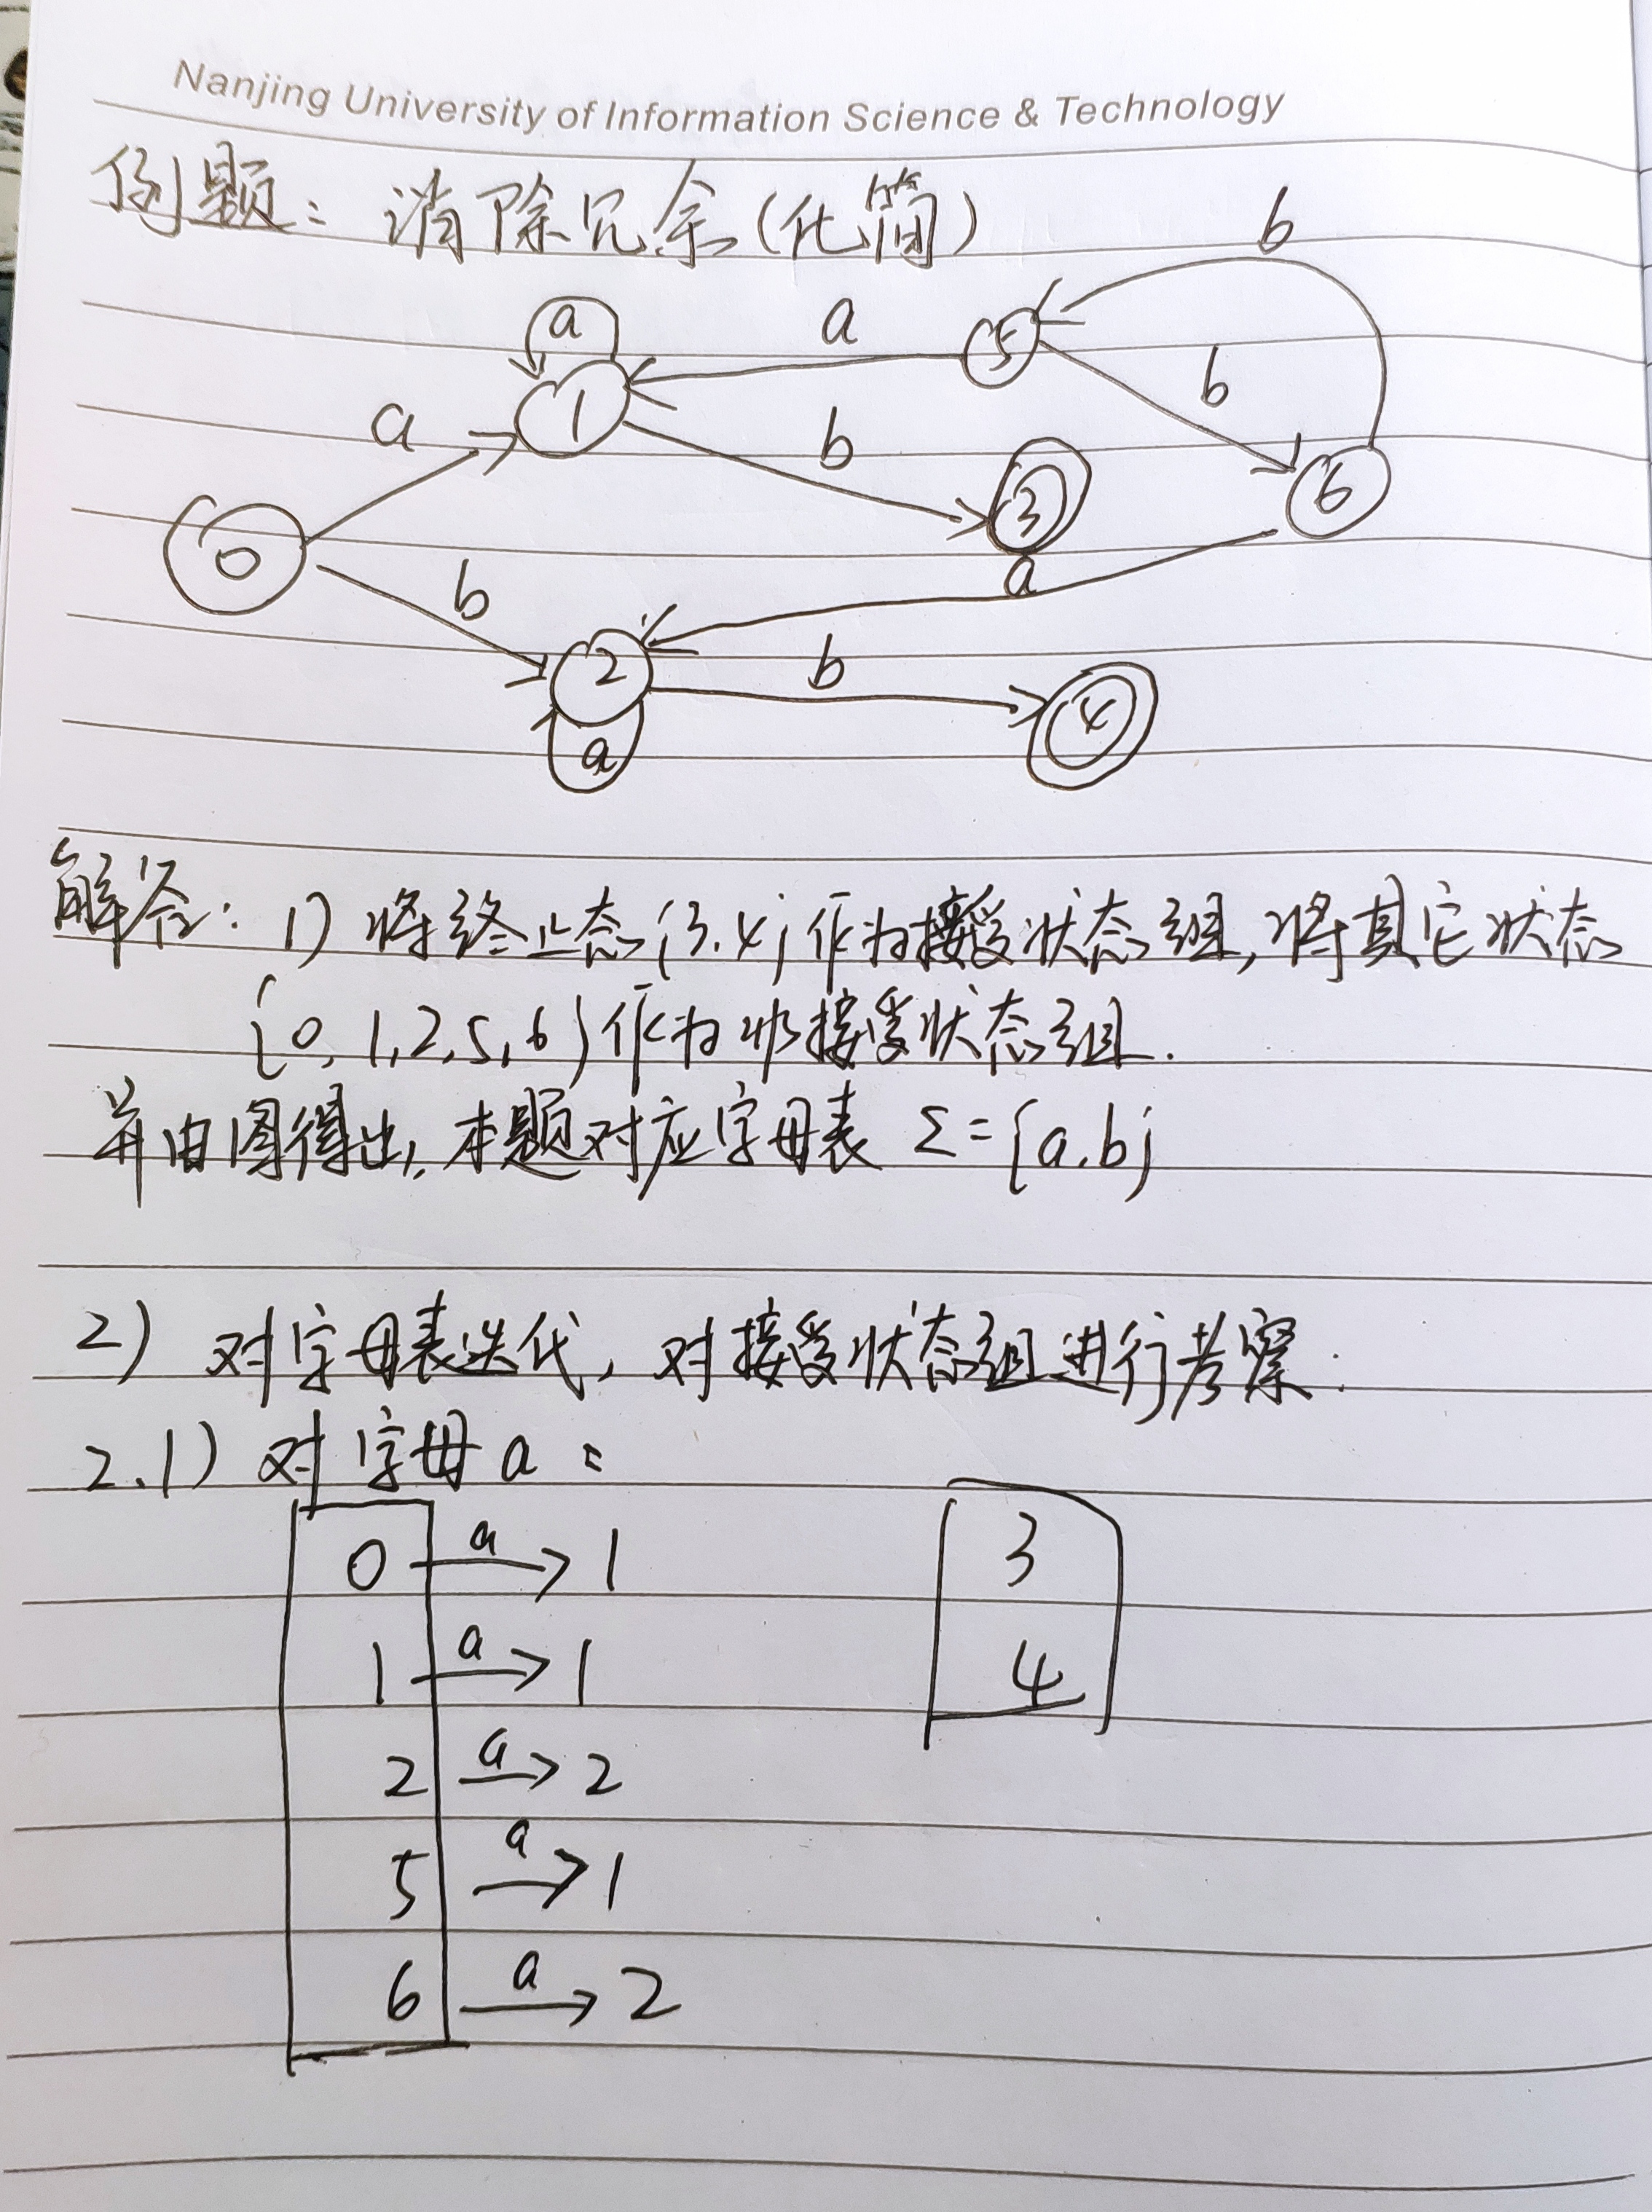 Nanjing University of Information Science & Technology
例题：消除冗余(化简)
b
a
a
5
b
1
a
b
6
3
0
a
b
2
b
4
a
解答：1) 将终止态{3.4}作为接受状态组,将其它状态
{0,1,2,5,6}作为非接受状态组.
并由图得出,本题对应字母表 Σ={a.b}
2) 对字母表迭代,对接受状态组进行考察:
2.1) 对字母a:
0 a→ 1
3
1 a→ 1
4
2 a→ 2
5 a→ 1
6 a→ 2